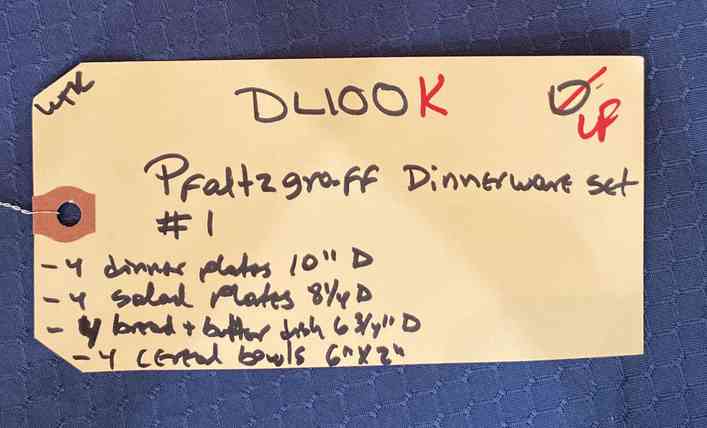 DL100K
UP
Pfaltzgraff Dinnerware set
#1
- 4 dinner plates 10" D
- 4 salad plates 8 1/4 D
- 4 bread + butter dish 6 3/4" D
- 4 cereal bowls 6" X 2"